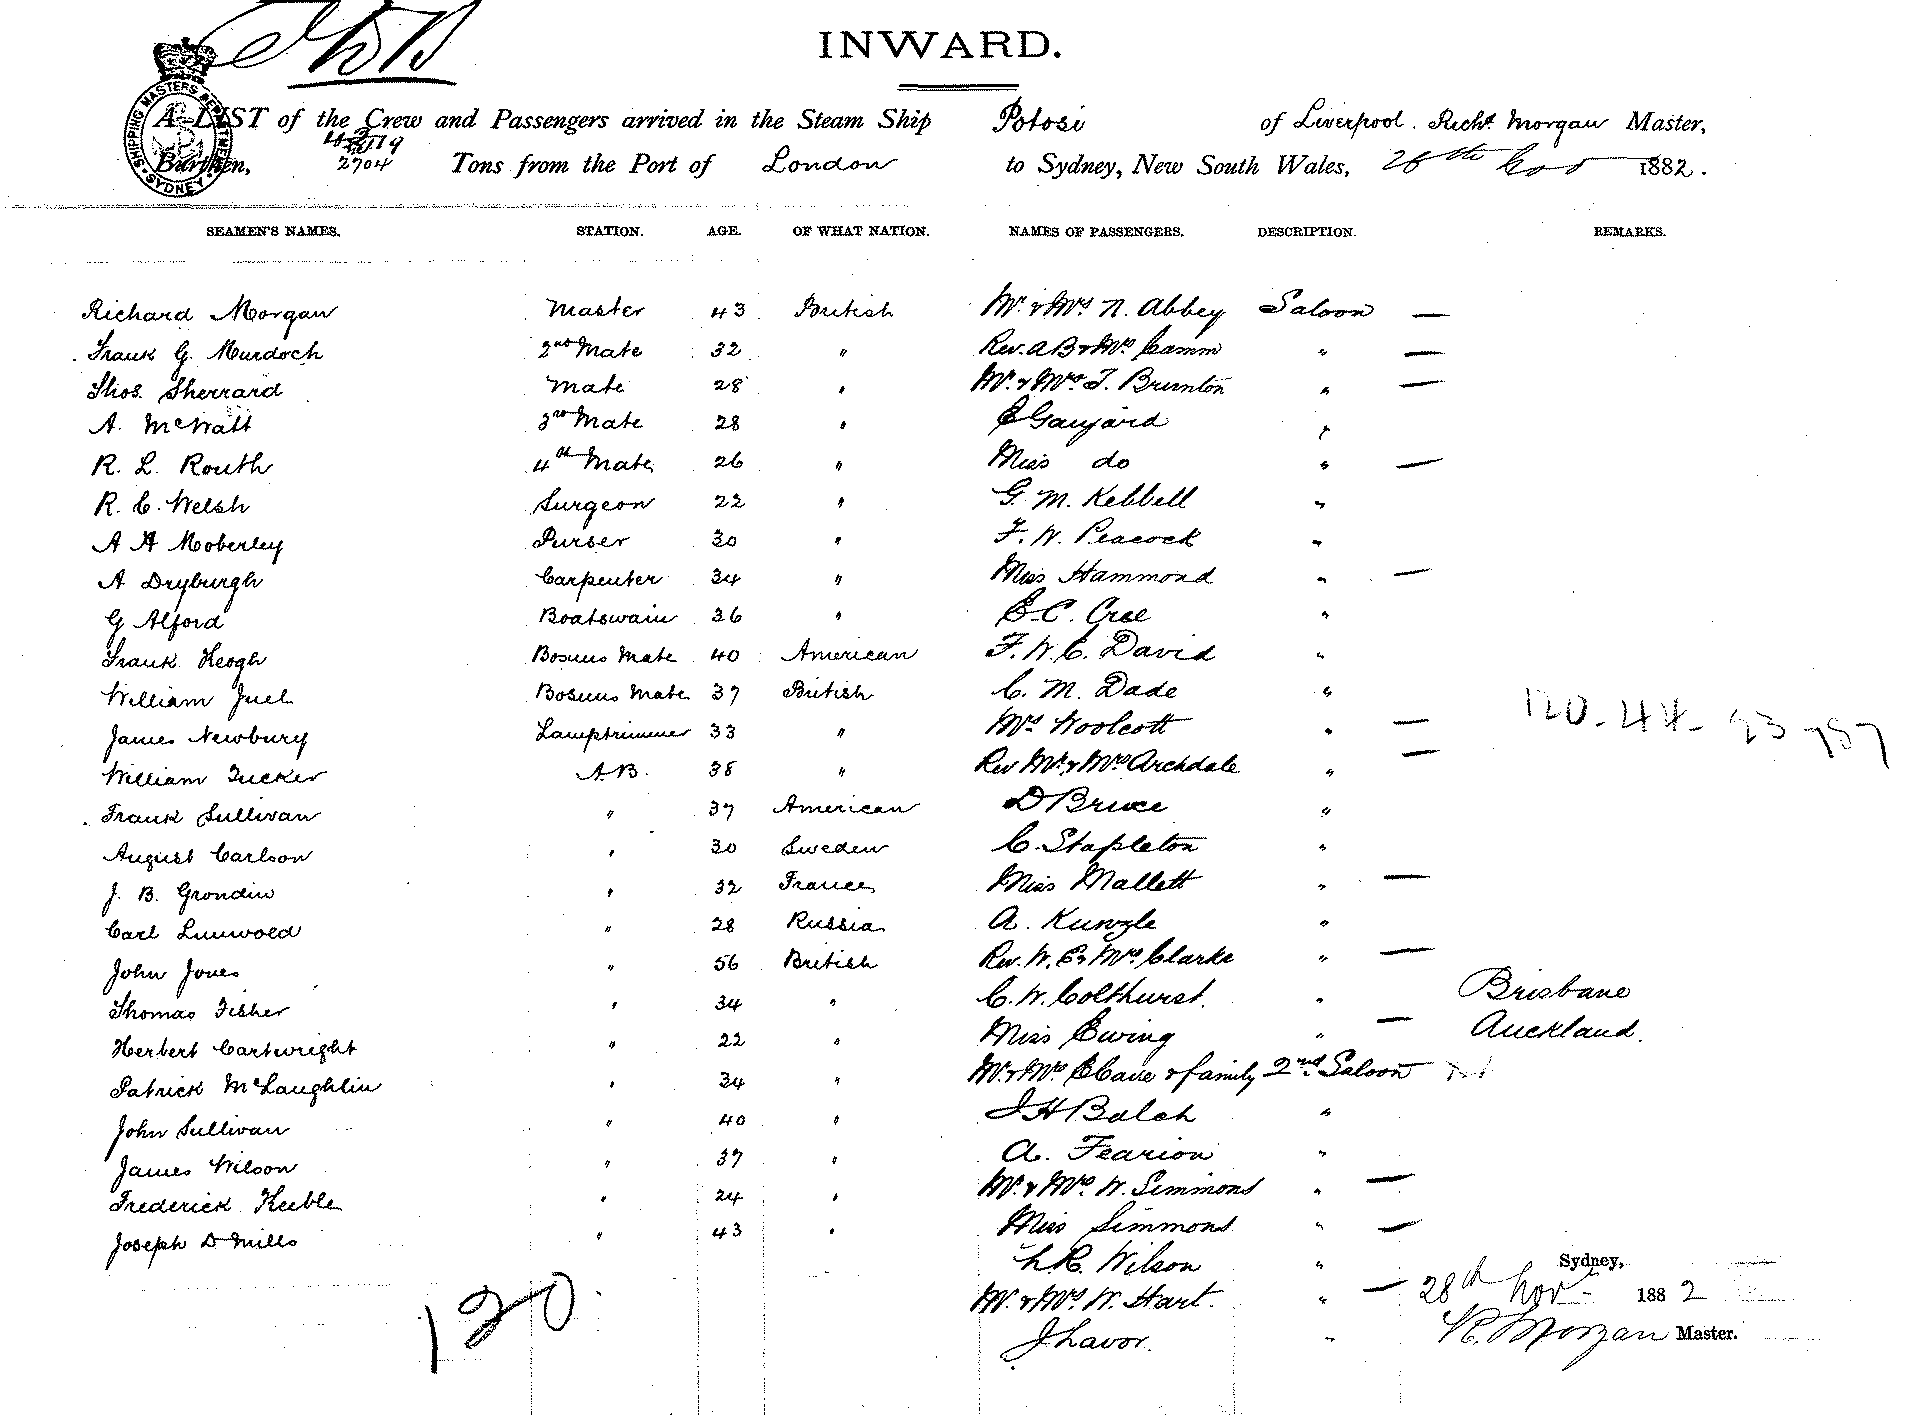 INWARD.
A LIST of the Crew and Passengers arrived in the Steam Ship Potosi of Liverpool. Richd. Morgan Master,
Burthen, 2704 Tons from the Port of London to Sydney, New South Wales, 28th Nov 1882.
SHIPPING MASTERS DEPARTMENT SYDNEY
SEAMEN'S NAMES. STATION. AGE. OF WHAT NATION. NAMES OF PASSENGERS. DESCRIPTION. REMARKS.
Richard Morgan Master 43 British Mr. & Mrs N. Abbey Saloon —
Frank G. Murdoch 2nd Mate 32 " Rev. A B & Mrs Camm " —
Thos. Sherrard Mate 28 " Mr. & Mrs T. Brunton " —
A. McWatt 3rd Mate 28 " E Gaujard "
R. L. Routh 4th Mate 26 " Miss do " —
R. C. Welsh Surgeon 22 " G. M. Kebbell "
A A Moberley Purser 30 " F. W. Peacock "
A Dryburgh Carpenter 34 " Miss Hammond " —
G Alford Boatswain 36 " E. C. Cree "
Frank Keogh Bosuns Mate 40 American F. W. C. David "
William Juel Bosuns Mate 37 British C. M. Dade "
James Newbury Lamptrimmer 33 " Mrs Woolcott " —
William Tucker A.B. 38 " Rev Mr. & Mrs Archdale " —
Frank Sullivan " 37 American D Bruce "
August Carlson " 30 Sweden C. Stapleton "
J. B. Grondin " 32 France Miss Mallett " —
Carl Lunwold " 28 Russia A. Kunzle "
John Jones " 56 British Rev. W. C & Mrs Clarke " —
Thomas Fisher " 34 " C. W. Colthurst. " Brisbane
Herbert Cartwright " 22 " Miss Ewing " — Auckland.
Patrick McLaughlin " 34 " Mr. & Mrs E Cave & family 2nd Saloon
John Sullivan " 40 " J H Balch "
James Wilson " 37 " A. Fearion "
Frederick Keeble " 24 " Mr. & Mrs. W. Simmons " —
Joseph D Mills " 43 " Miss Simmons " —
Wilson "
Mr. & Mrs. W. Hart. " —
J Lavor. "
120
Sydney,
28th Nov. 1882
R. Morgan Master.